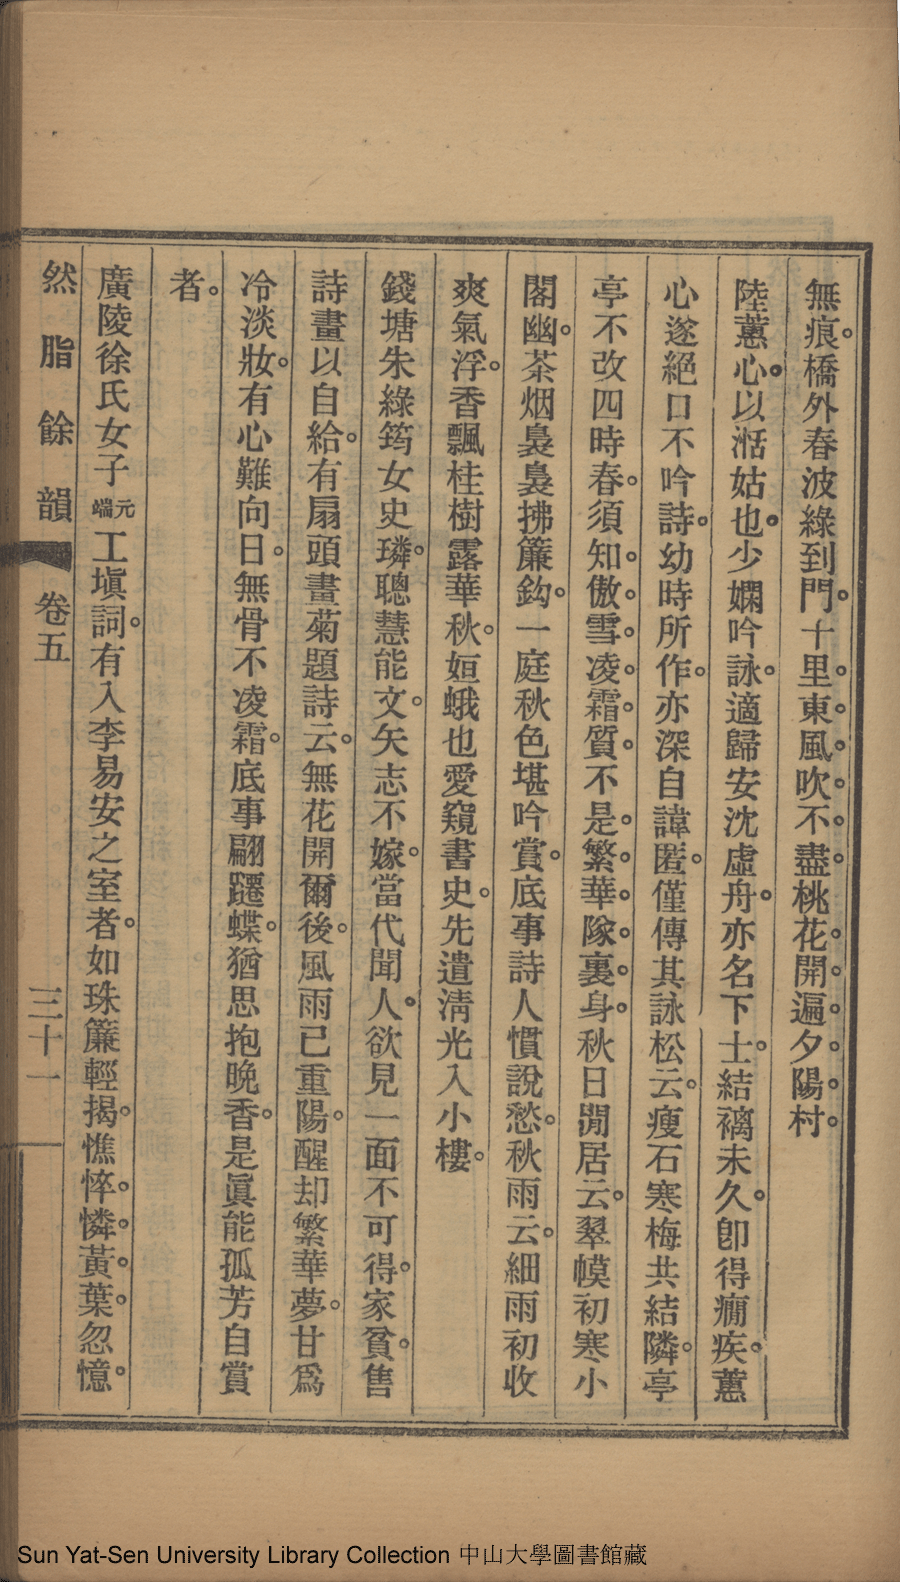 無痕。橋外春波綠到門。十里東風吹不盡。桃花開遍夕陽村。
陸蕙心。以湉姑也。少嫻吟詠。適歸安沈虛舟。亦名下士。結褵未久。卽得癇疾。蕙
心遂絕口不吟詩。幼時所作。亦深自諱匿。僅傳其詠松云。瘦石寒梅共結隣。亭
亭不改四時春。須知傲雪凌霜質。不是繁華隊裏身。秋日閒居云。翠幙初寒小
閣幽。茶烟裊裊拂簾鈎。一庭秋色堪吟賞。底事詩人慣說愁。秋雨云。細雨初收
爽氣浮。香飄桂樹露華秋。姮蛾也愛窺書史。先遣淸光入小樓。
錢塘朱綠筠女史璘。聰慧能文。矢志不嫁。當代聞人。欲見一面不可得。家貧。售
詩畫以自給。有扇頭畫菊題詩云。無花開爾後。風雨已重陽。醒却繁華夢。甘爲
冷淡妝。有心難向日。無骨不凌霜。底事翩躚蝶。猶思抱晚香。是眞能孤芳自賞
者。
廣陵徐氏女子元端工塡詞。有入李易安之室者。如珠簾輕揭。憔悴憐黃葉。忽憶
然脂餘韻 卷五 三十一
Sun Yat-Sen University Library Collection 中山大學圖書館藏